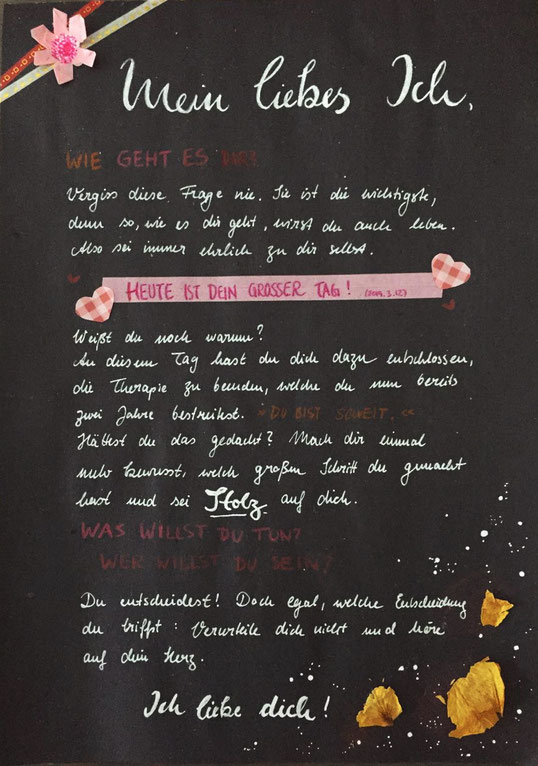 Mein liebes Ich,
WIE GEHT ES DIR?
Vergiss diese Frage nie. Sie ist die wichtigste,
denn so, wie es dir geht, wirst du auch leben.
Also sei immer ehrlich zu dir selbst.
HEUTE IST DEIN GROSSER TAG!
Weißt du noch warum?
An diesem Tag hast du dich dazu entschlossen,
die Therapie zu beenden, welche du nun bereits
zwei Jahre bestreitest. DU BIST SOWEIT.
Hättest du das gedacht? Mach dir einmal
mehr bewusst, welch großen Schritt du gemacht
hast und sei Stolz auf dich.
WAS WILLST DU TUN?
WER WILLST DU SEIN?
Du entscheidest! Doch egal, welche Entscheidung
du triffst: Verurteile dich nicht und höre
auf dein Herz.
Ich liebe dich!